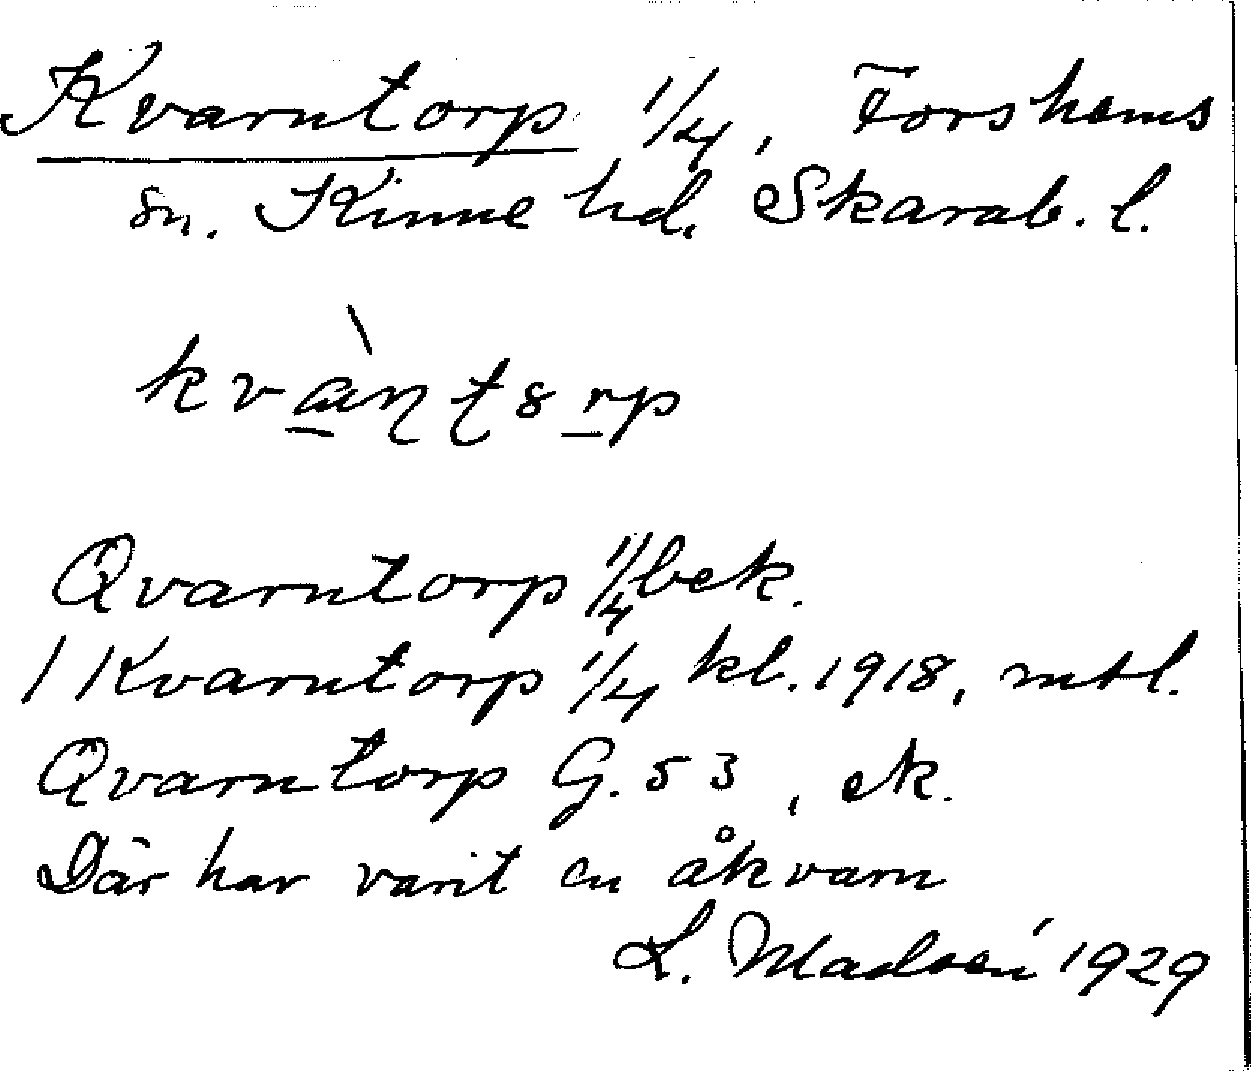 Kvarntorp 1/4, Forshems
sn. Kinne hd. Skarab. l.
kvàṇʈ8rp
Qvarntorp 1/4 bek.
/ Kvarntorp 1/4 kl. 1918, mtl.
Qvarntorp G. 53, ek.
Där har varit en åkvarn
L. 1929